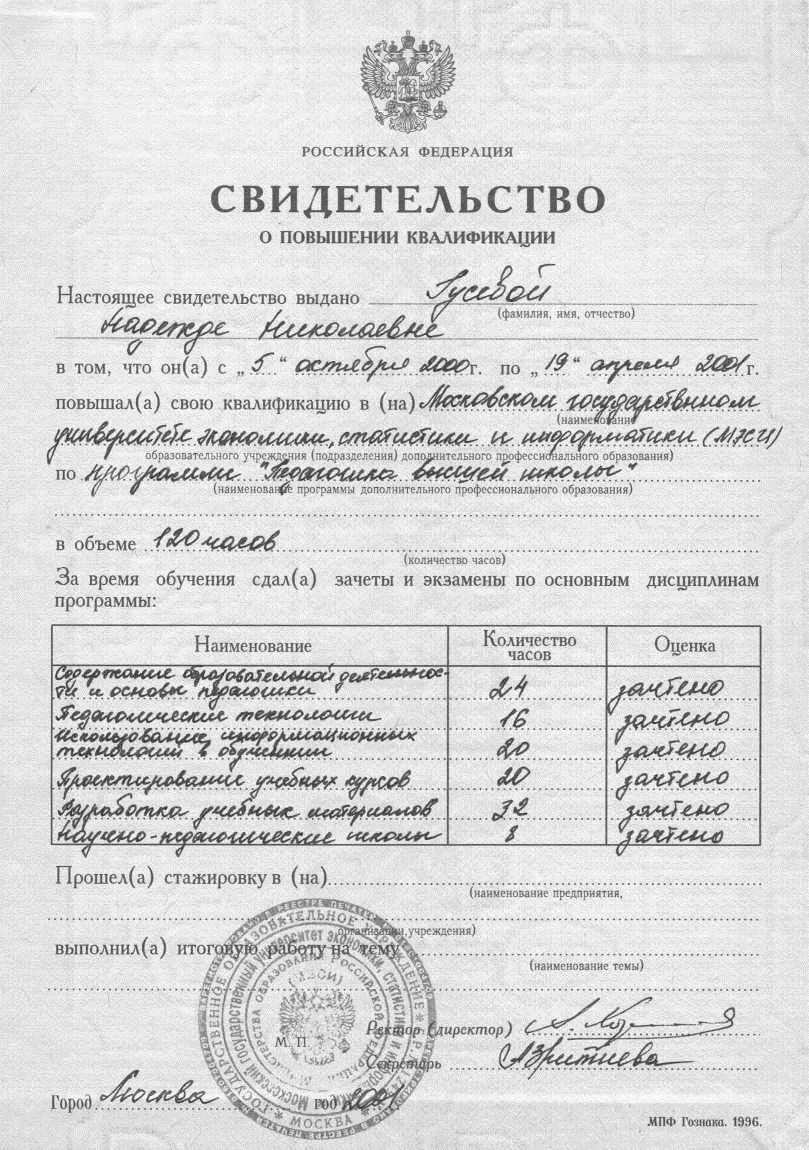 РОССИЙСКАЯ ФЕДЕРАЦИЯ
СВИДЕТЕЛЬСТВО
О ПОВЫШЕНИИ КВАЛИФИКАЦИИ
Настоящее свидетельство выдано Гусевой
(фамилия, имя, отчество)
Надежде Николаевне
в том, что он(а) с „5“ октября 2000г. по „19“ апреля 2001г.
повышал(а) свою квалификацию в (на) Московском государственном
(наименование
университете экономики, статистики и информатики (МЭСИ)
образовательного учреждения (подразделения) дополнительного профессионального образования)
по программе "Педагогика высшей школы"
(наименование программы дополнительного профессионального образования)
в объеме 120 часов
(количество часов)
За время обучения сдал(а) зачеты и экзамены по основным дисциплинам
программы:
Наименование Количество часов Оценка
Содержание образовательной деятельнос-
ти и основы педагогики 24 зачтено
Педагогические технологии 16 зачтено
Использование информационных
технологий в обучении 20 зачтено
Проектирование учебных курсов 20 зачтено
Разработка учебных материалов 32 зачтено
Научно-педагогические школы 8 зачтено
Прошел(а) стажировку в (на)
(наименование предприятия,
организации,учреждения)
выполнил(а) итоговую работу на тему
(наименование темы)
Ректор (директор)
М. П.
Секретарь
Город Москва год 2001
МПФ Гознака. 1996.